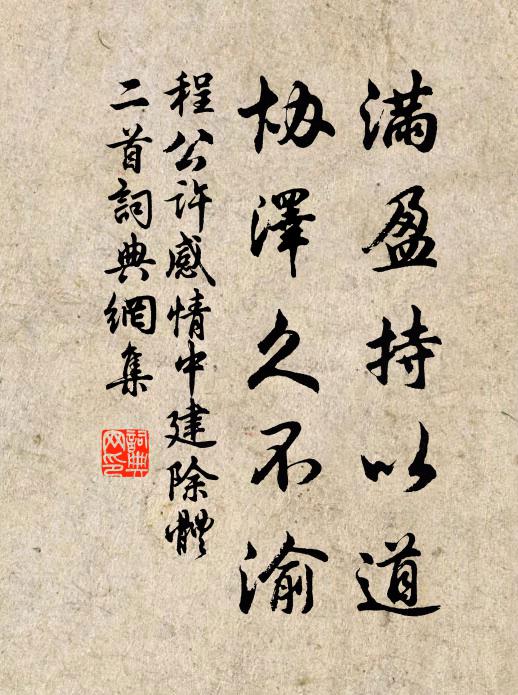 滿盈持以道
協澤久不渝
程公許感情中建除體
二首詞典網集
詞典網印